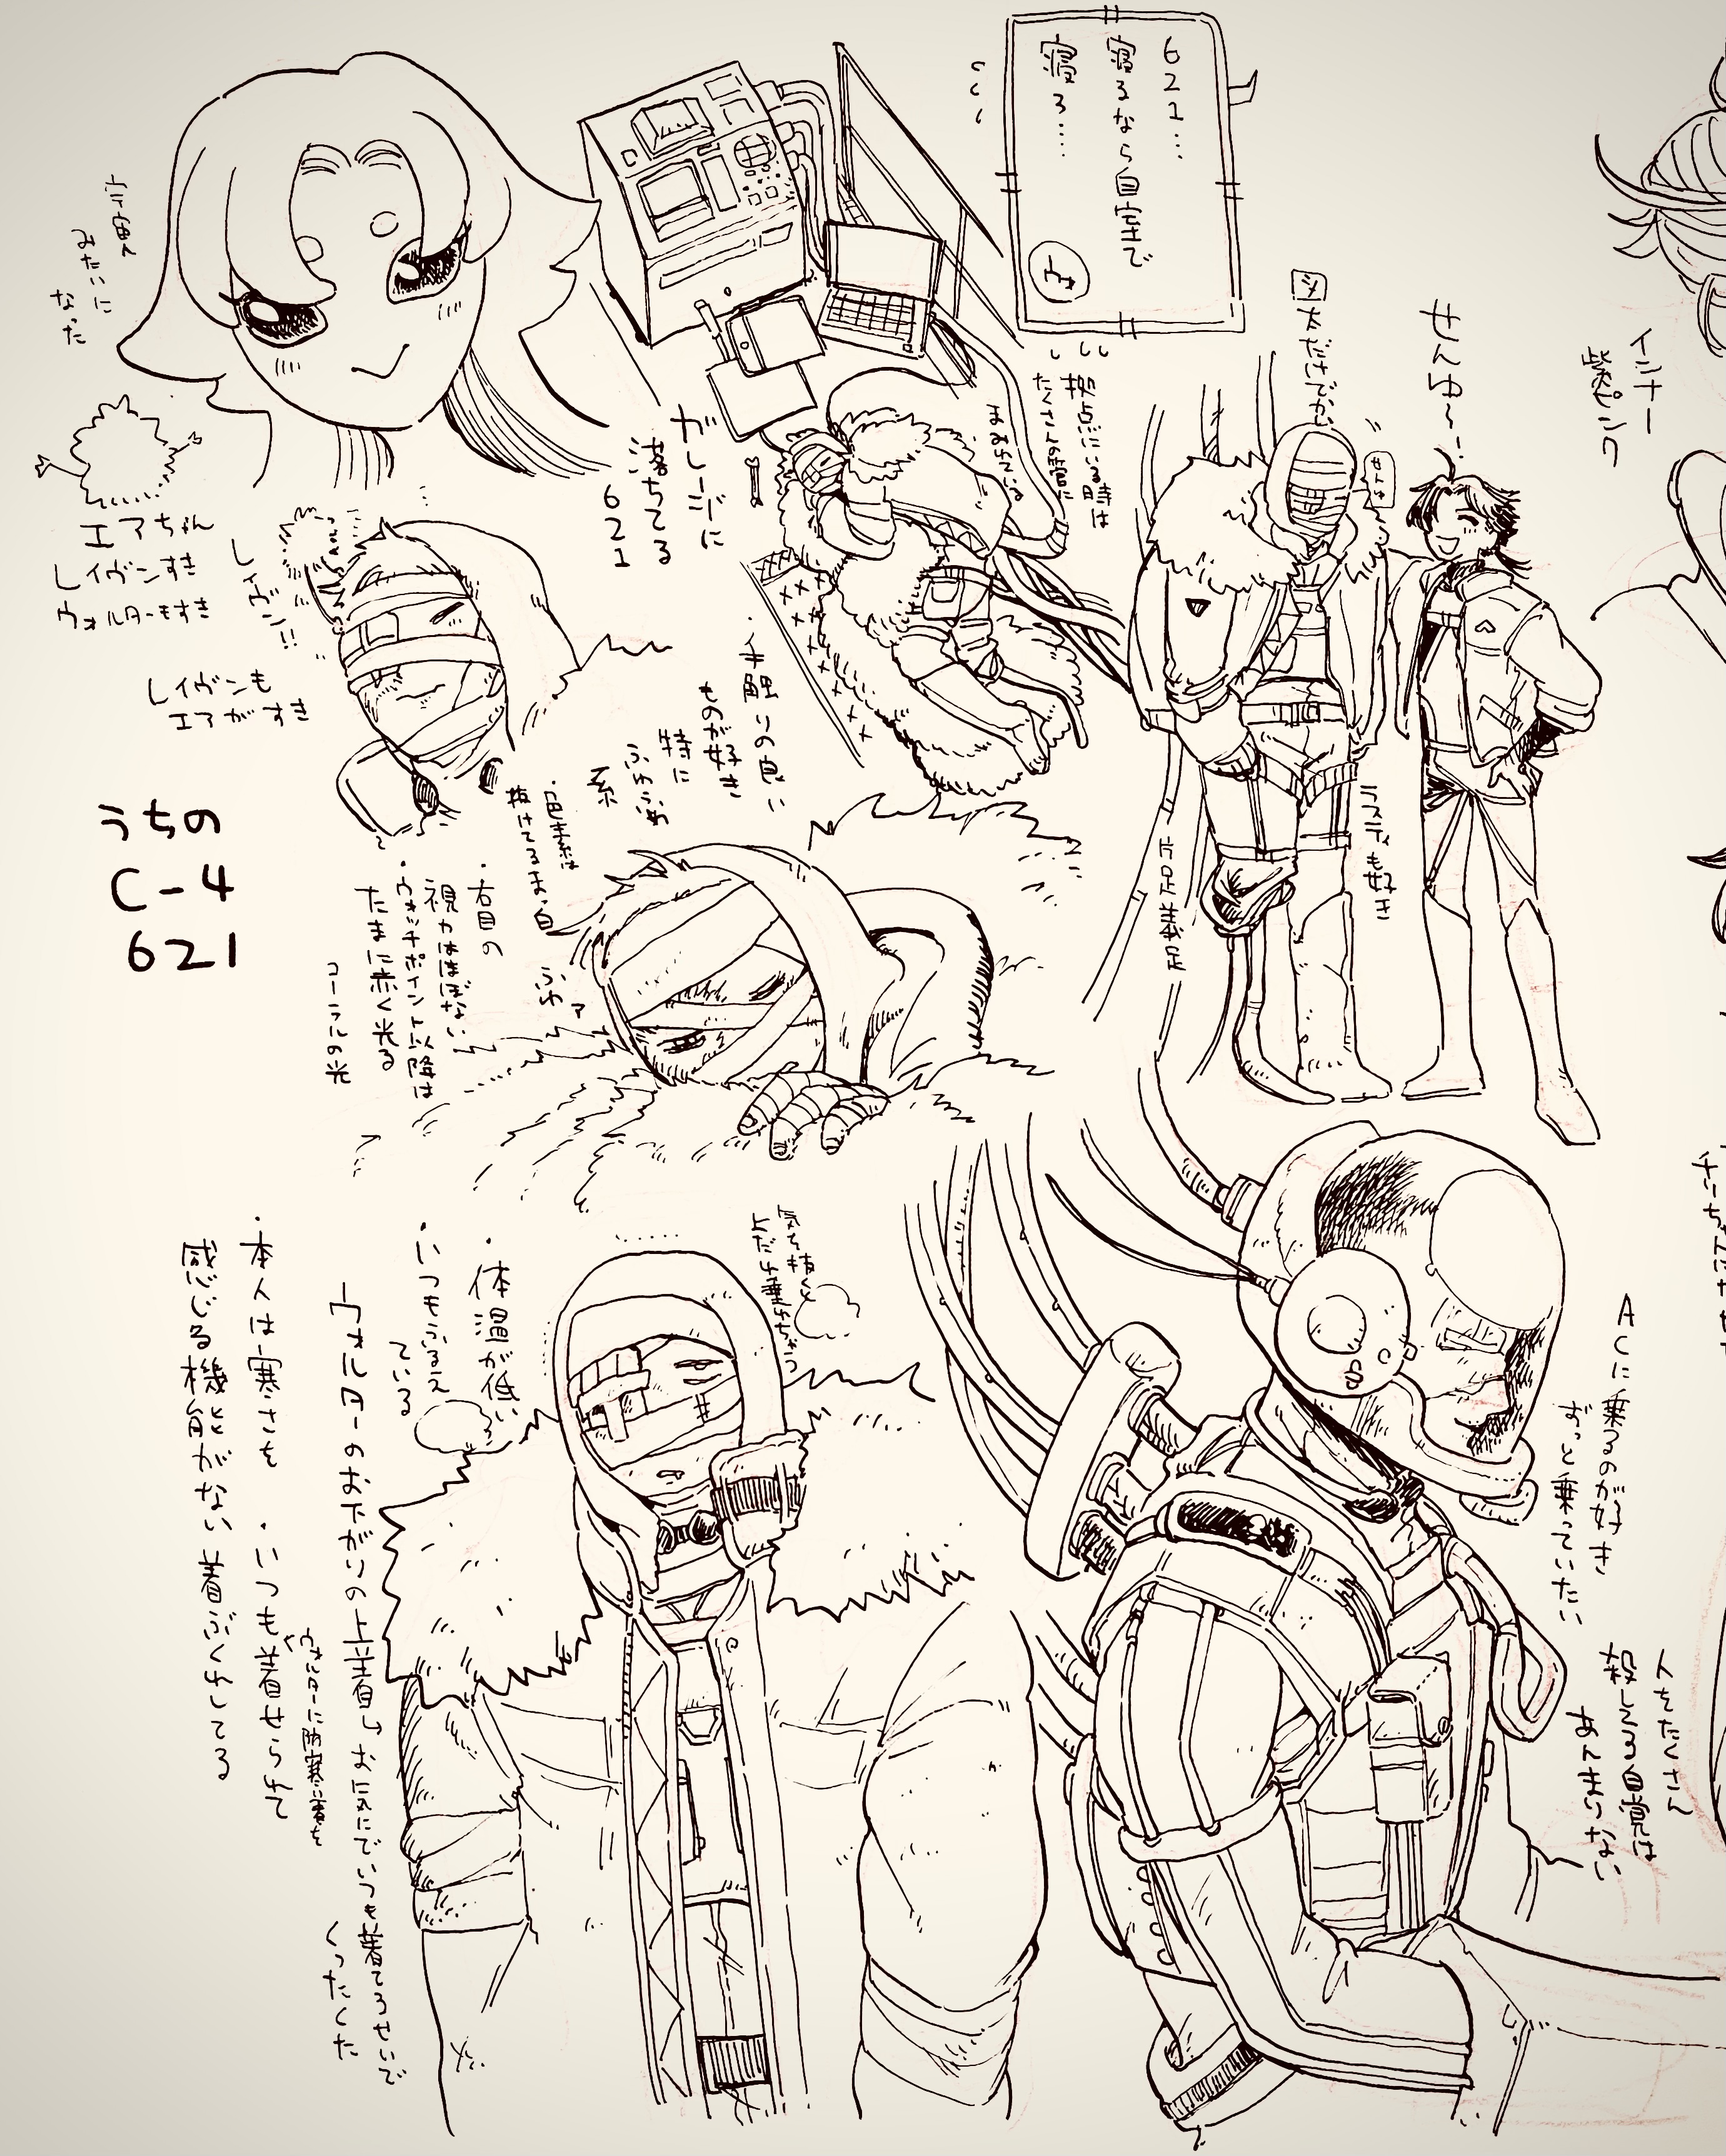 621…
寝るなら自室で
寝ろ…
ウォ
宇宙人
みたいに
なった
エアちゃん
レイヴンすき
ウォルターもすき
レイヴン!!
レイヴンも
エアがすき
うちの
C-4
621
ガレージに
落ちてる
621
拠点にいる時は
たくさんの管に
まみれている
太だけでかい
せんゆ〜!
せんゆ
インナー
紫ピンク
ラスティも好き
片足義足
・手触りの良い
ものが好き
特に
ふわふわ
系
・色素は
抜けてるまっ白
・右目の
視力はほぼない
・ウォッチポイント以降は
たまに赤く光る
コーラルの光
ふわァ
気ち抜くと
よだれ垂れちゃう
・体温が低い
・いつもふるえ
ている
ウォルターのお下がりの上着→お気にでいつも着てるせいで
くったくた
・本人は寒さを
感じる機能がない
・いつも着せられて
着ぶくれしてる
ウォルターに防寒着を
ACに乗るのが好き
ずっと乗っていたい
人をたくさん
殺してる自覚は
あんまりない